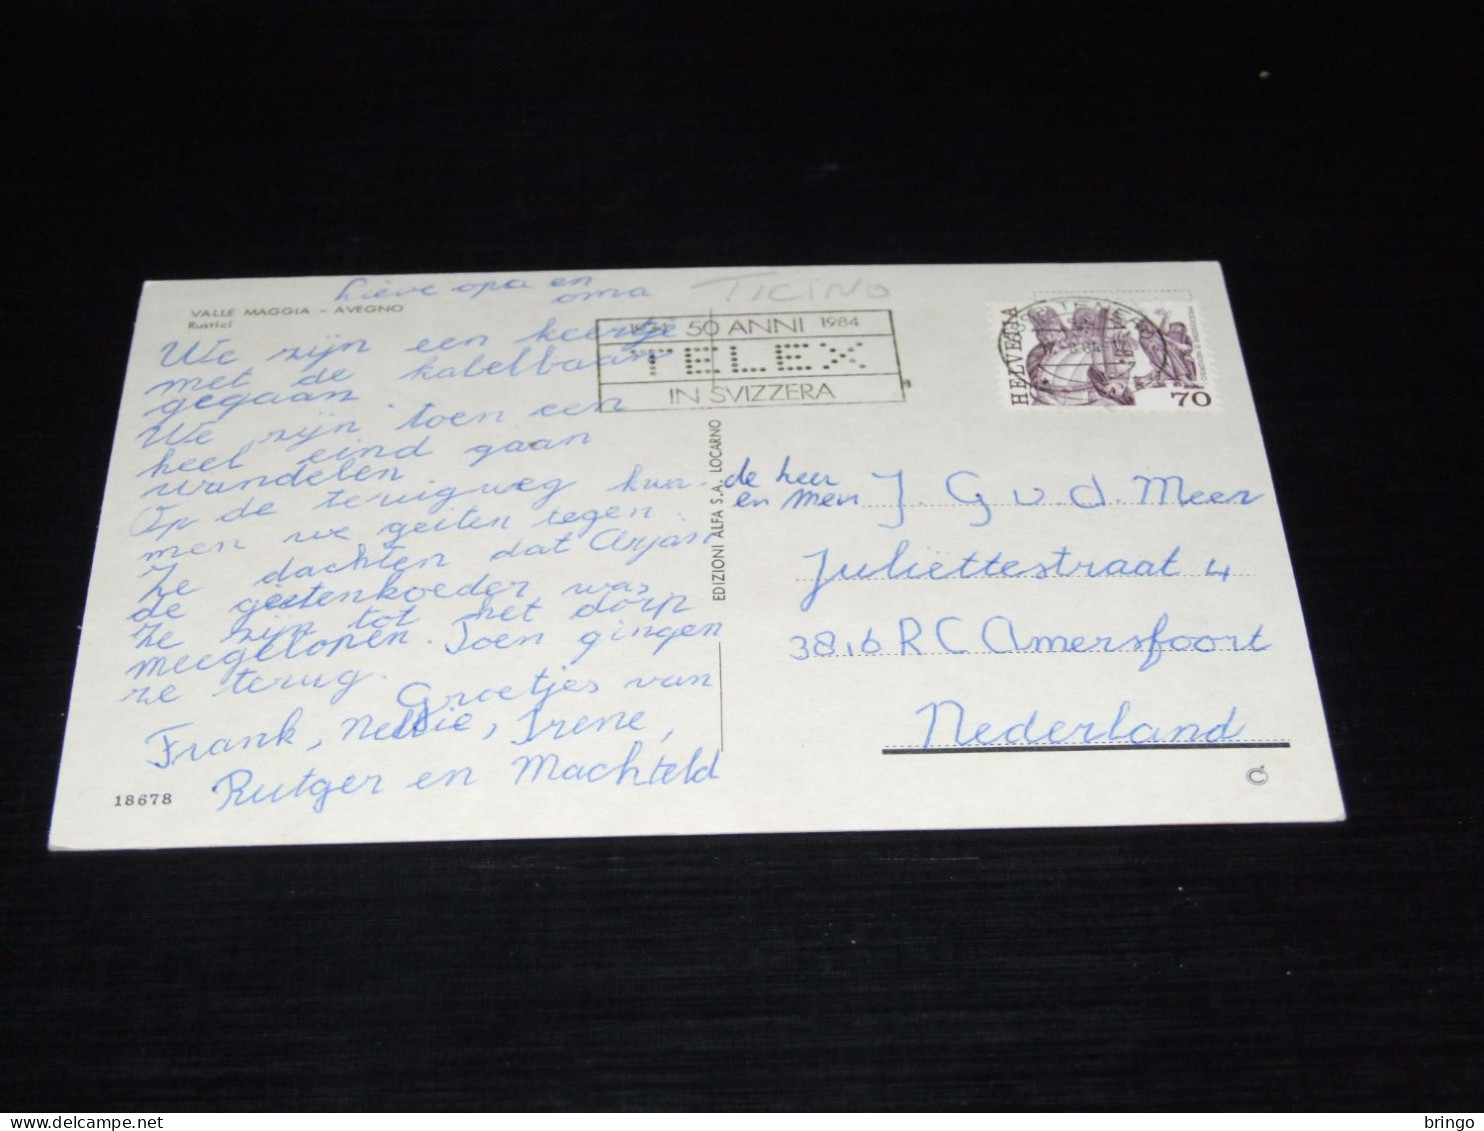 VALLE MAGGIA - AVEGNO
Rustici
Lieve opa en
oma
TICINO
We zijn een keertje
met de kabelbaan
gegaan
We zijn toen een
heel eind gaan
wandelen
Op de terugweg kwa-
men we geiten tegen.
Ze dachten dat Arjan
de geitenhoeder was
Ze zijn tot het dorp
meegelopen. Toen gingen
ze terug.
Groetjes van
Frank, Nellie, Irene,
Rutger en Machteld
18678
EDIZIONI ALFA S.A. LOCARNO
50 ANNI 1984
TELEX
IN SVIZZERA
HELVETIA
70
de heer
en mevr J. G v. d. Meer
Juliëttestraat 4
3816 RC Amersfoort
Nederland
bringo